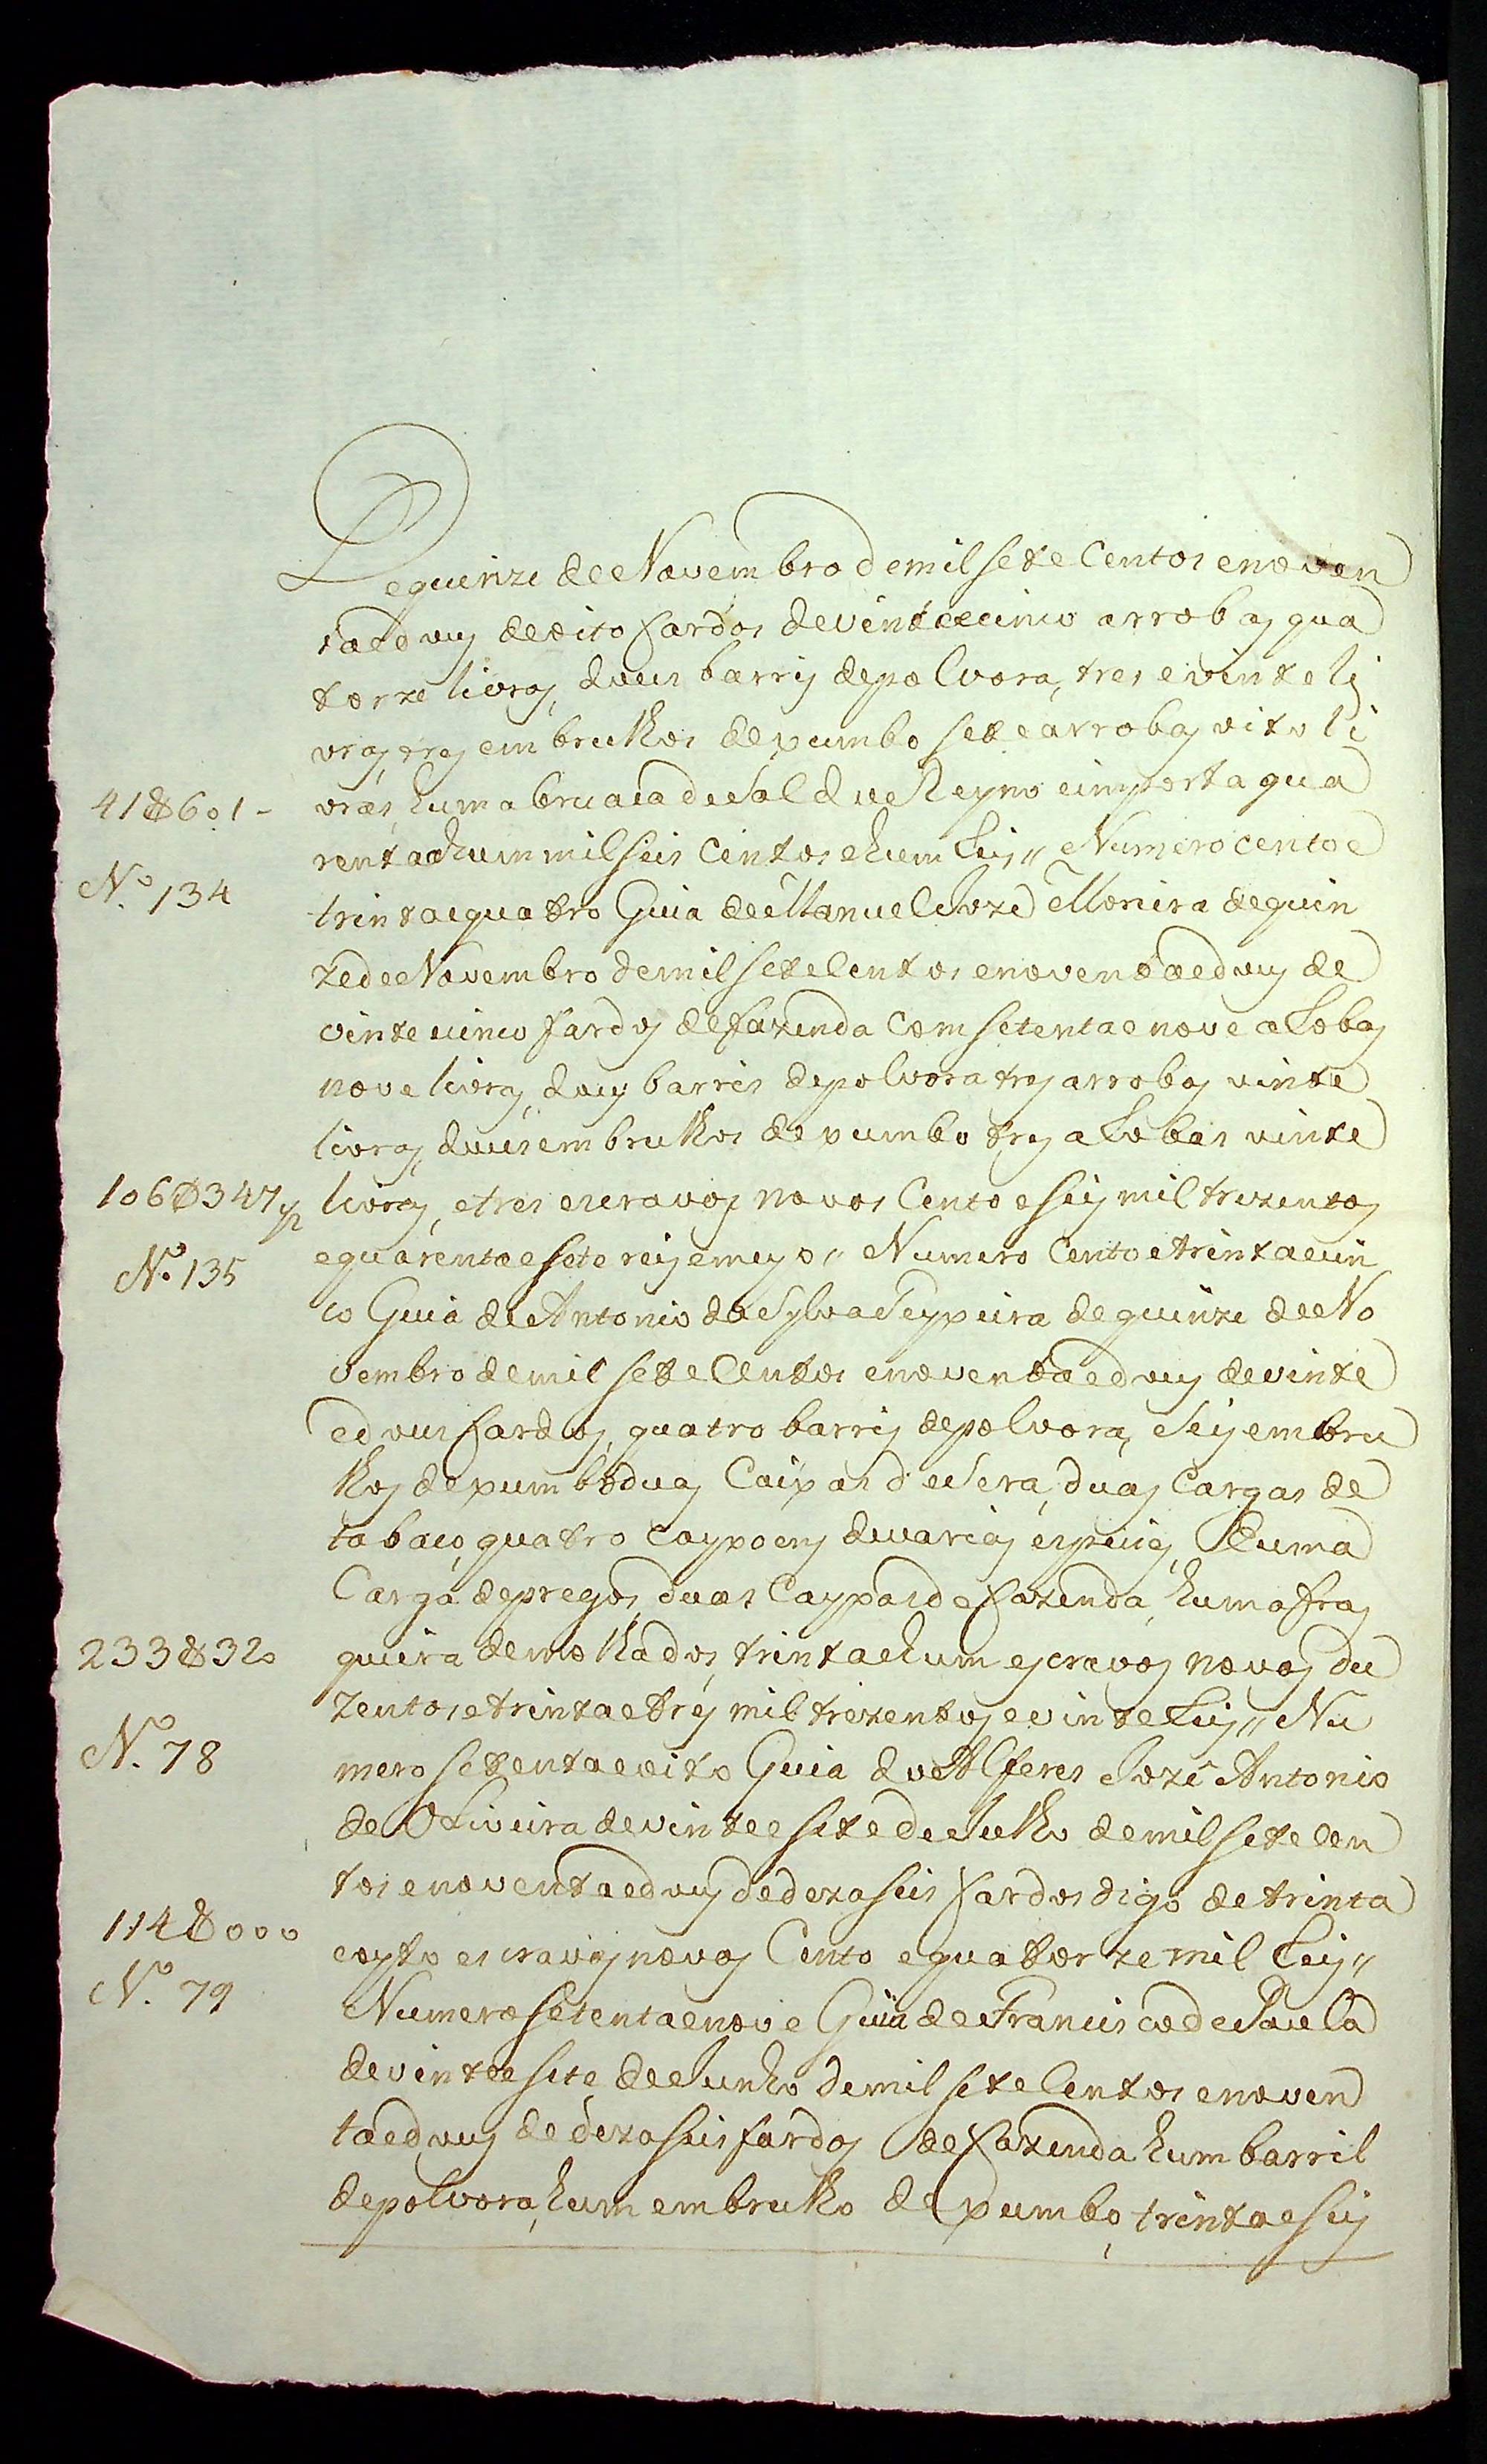 De quinze de Novembro de mil sete Centos e noven
ta e dous de oito fardos de vinte e cinco arrobas qua
torze livras, dous barris de polvora, tres e vinte li
vras, tres embrulhos de xumbo sete arrobas oito li
41$601 - vras, huma bruaca de Sal do Reyno e importa qua
renta e hum mil seis centos e hum Reis,, Numero cento e
No. 134 trinta e quatro Guia de Manuel Joze Moreira de quin
ze de Novembro de mil sete Centos e noventa e dous de
vinte e cinco fardos de fazenda Com setenta e nove aRobas
nove livras, dous barris de polvora tres arrobas vinte
livras, dous embrulhos de xumbo tres aRobas vinte
106$347 1/2 livras, e tres escravos novos Cento e seis mil trezentos
e quarenta e sete reis e meyo,, Numero Cento e trinta e cin
No. 135
co Guia de Antonio da Sylva Teyxeira de quinze de No
vembro de mil sete Centos e noventa e dous de vinte
e dous fardos, quatro barris de polvora, Seis embru
lhos de xumbo duas Caixas de Sera, duas Cargas de
tabaco, quatro Cayxoens de varias especies, Huma
Carga de pregos, duas Cayxas de fazenda, huma fras
233$320 queira de molhados, trinta e hum escravos novos du
zentos e trinta e tres mil trezentos e vinte Reis,, Nu
No. 78 mero setenta e oito Guia do Alferes Joze Antonio
de Oliveira de vinte e sete de Julho de mil sete Cen
tos e noventa e dous de dezaseis fardos digo de trinta
114$000 e oyto escravos novos Cento e quatorze mil Reis,,
No. 79 Numero setenta e nove Guia de Francisco de Paula
de vinte e sete de Junho de mil sete Centos e noven
ta e dous de dezaseis fardos de fazenda hum barril
de polvora, hum embrulho de xumbo, trinta e seis